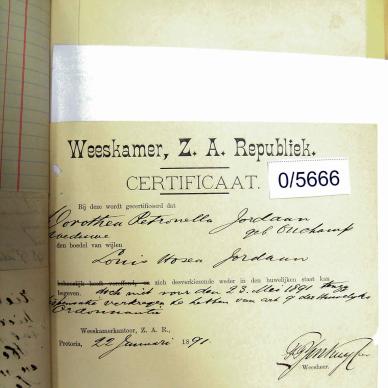 Weeskamer, Z. A. Republiek.
CERTIFICAAT.
0/5666
Bij deze wordt gecertificeerd dat
Dorothea Petronella Jordaan
weduwe geb Ouchamp
den boedel van wijlen
Louis Hosea Jordaan
zich desverkiezende weder in den huwelijken staat kan
begeven. mits niet voor den 23 Mei 1891
verkregen te hebben van art 9 des Huwelijks
Ordonnantie
Weeskamerkantoor, Z. A. R.,
Pretoria, 22 Januari 1891.
Weesheer.